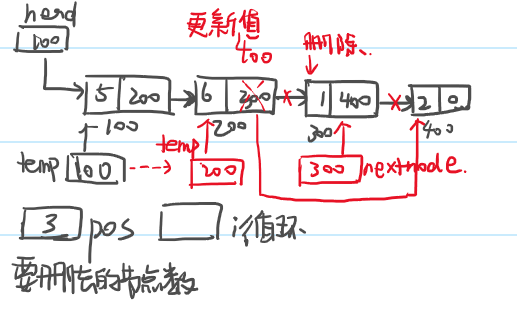 head
100
更新值
400
删除、
5 200
6
1 400
2 0
100
200
300
400
temp
100
temp
200
300
nextnode.
3 pos
i循环、
要删除的节点数